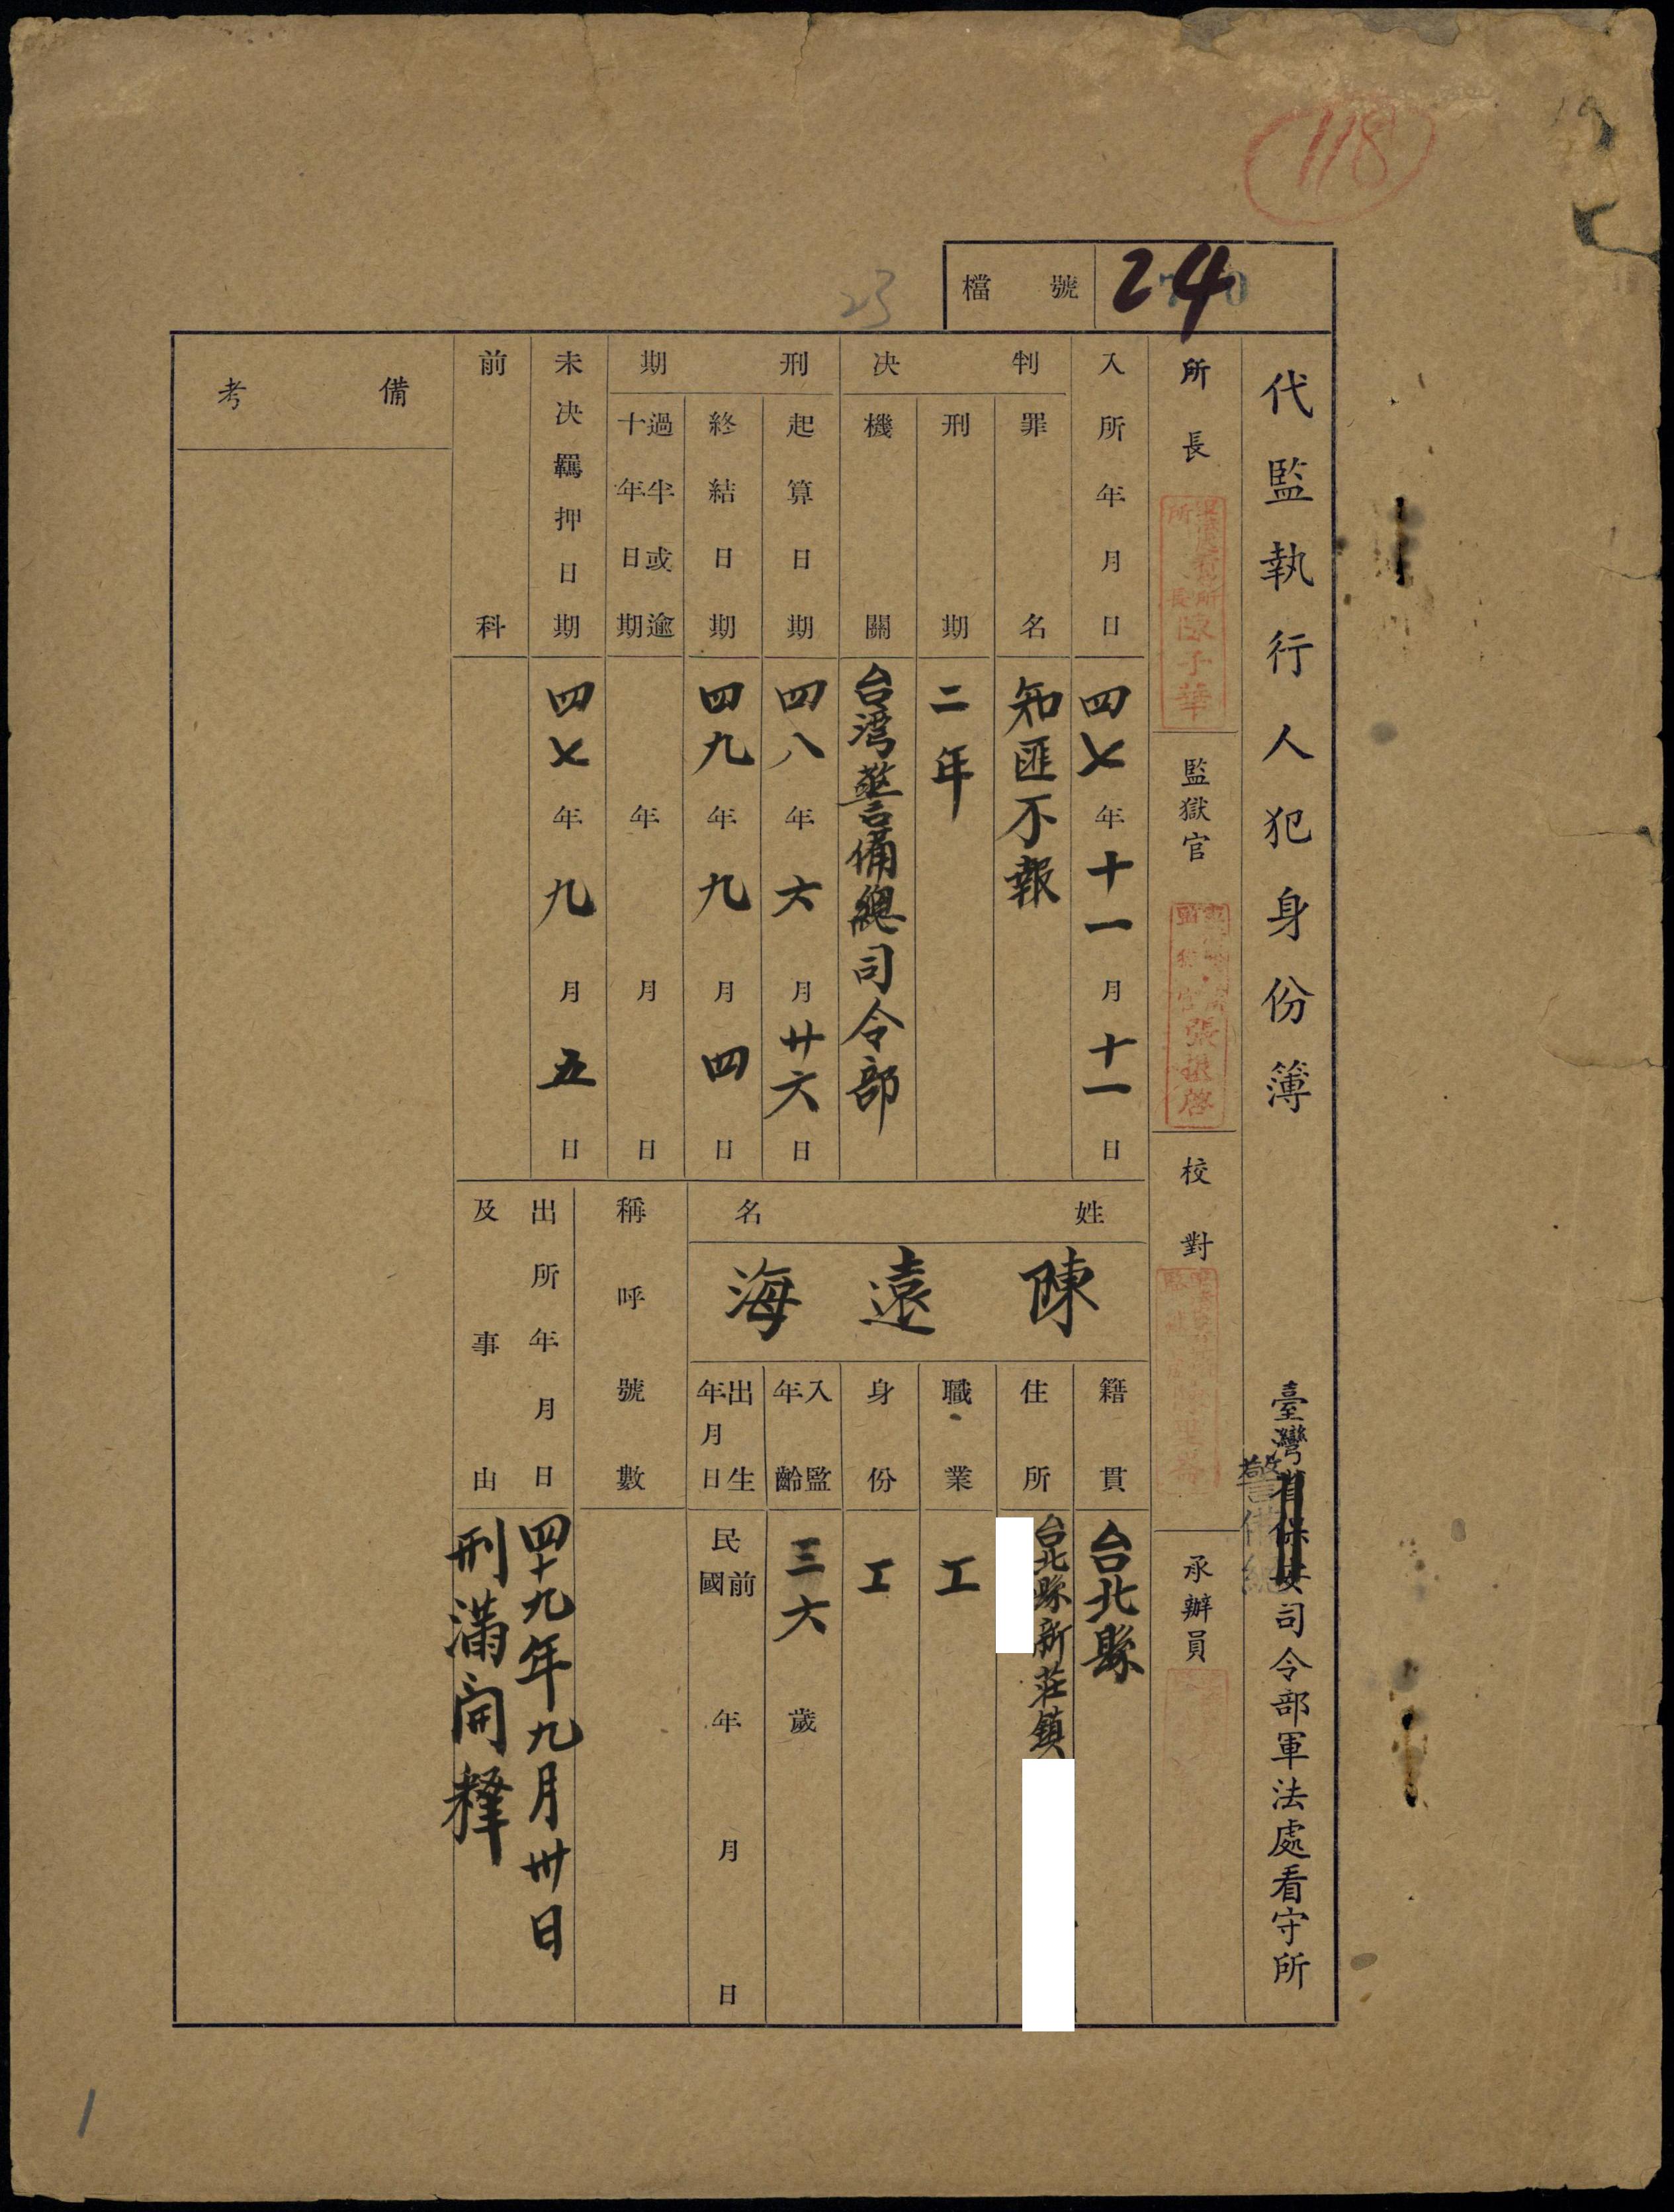 118
23
檔號
24
代監執行人犯身份簿
臺灣省保安司令部軍法處看守所
警備總
所長
陳子華
監獄官
校對
承辦員
入所年月日
四七年十一月十一日
判決
罪名
知匪不報
刑期
二年
機關
台灣警備總司令部
刑期
起算日期
四八年六月廿六日
終結日期
四九年九月四日
過半或逾
十年日期
年月日
未決羈押日期
四七年九月五日
前科
備考
姓名
陳遠海
籍貫
台北縣
住所
台北縣新莊鎮
職業
工
身份
工
入監
年齡
三六歲
出生
年月日
民前
國
年月日
稱呼號數
出所年月日
及事由
四十九年九月卅日
刑滿開釋
1